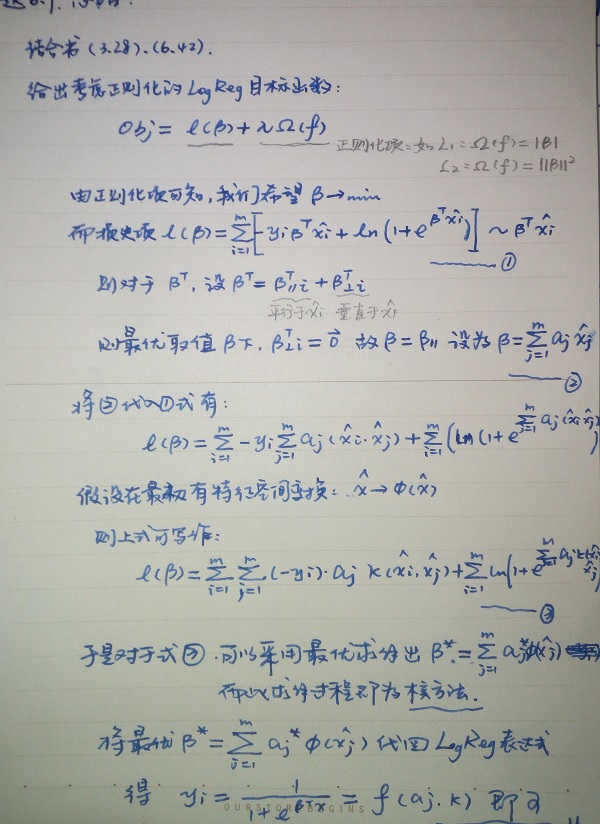 题6.9, 详解:
结合书 (3.28), (6.42).
给出考虑正则化的 LogReg 目标函数:
Obj = ℓ(β) + λΩ(f)
正则化项: 如 L₁: Ω(f) = |β|
L₂: Ω(f) = ||β||²
由正则化项可知, 我们希望 β → min
而损失项 ℓ(β) = Σ_{i=1}^{m} [-yᵢβᵀx̂ᵢ + ln(1+e^{βᵀx̂ᵢ})] ~ βᵀx̂ᵢ
①
则对于 βᵀ, 设 βᵀ = β∥ᵀi + β⊥ᵀi
平行于x̂ᵢ 垂直于x̂ᵢ
则最优取值 β下, β⊥ᵀi = 0⃗ 故 β = β∥ 设为 β = Σ_{j=1}^{m} aⱼ x̂ⱼ
②
将②代入①式有:
ℓ(β) = Σ_{i=1}^{m} -yᵢ Σ_{j=1}^{m} aⱼ (x̂ᵢ·x̂ⱼ) + Σ_{i=1}^{m} (ln(1+e^{Σ_{j=1}^{m} aⱼ(x̂ᵢx̂ⱼ)})
假设在最初有特征空间变换: x̂ → φ(x̂)
则上式可写作:
ℓ(β) = Σ_{i=1}^{m} Σ_{j=1}^{m} (-yᵢ)·aⱼ k(x̂ᵢ, x̂ⱼ) + Σ_{i=1}^{m} ln(1+e^{Σ_{j=1}^{m} aⱼk(x̂ᵢ x̂ⱼ)})
③
于是对于式③, 可以采用最优求解出 β* = Σ_{j=1}^{m} aⱼ*φ(x̂ⱼ)
而此求解过程即为核方法.
将最优 β* = Σ_{i=1}^{m} aⱼ* φ(x̂ⱼ) 代回 LogReg 表达式
得 yᵢ = 1/(1+e^{βᵀx}) = f(aⱼ, k) 即可
OURSTORYBEGINS